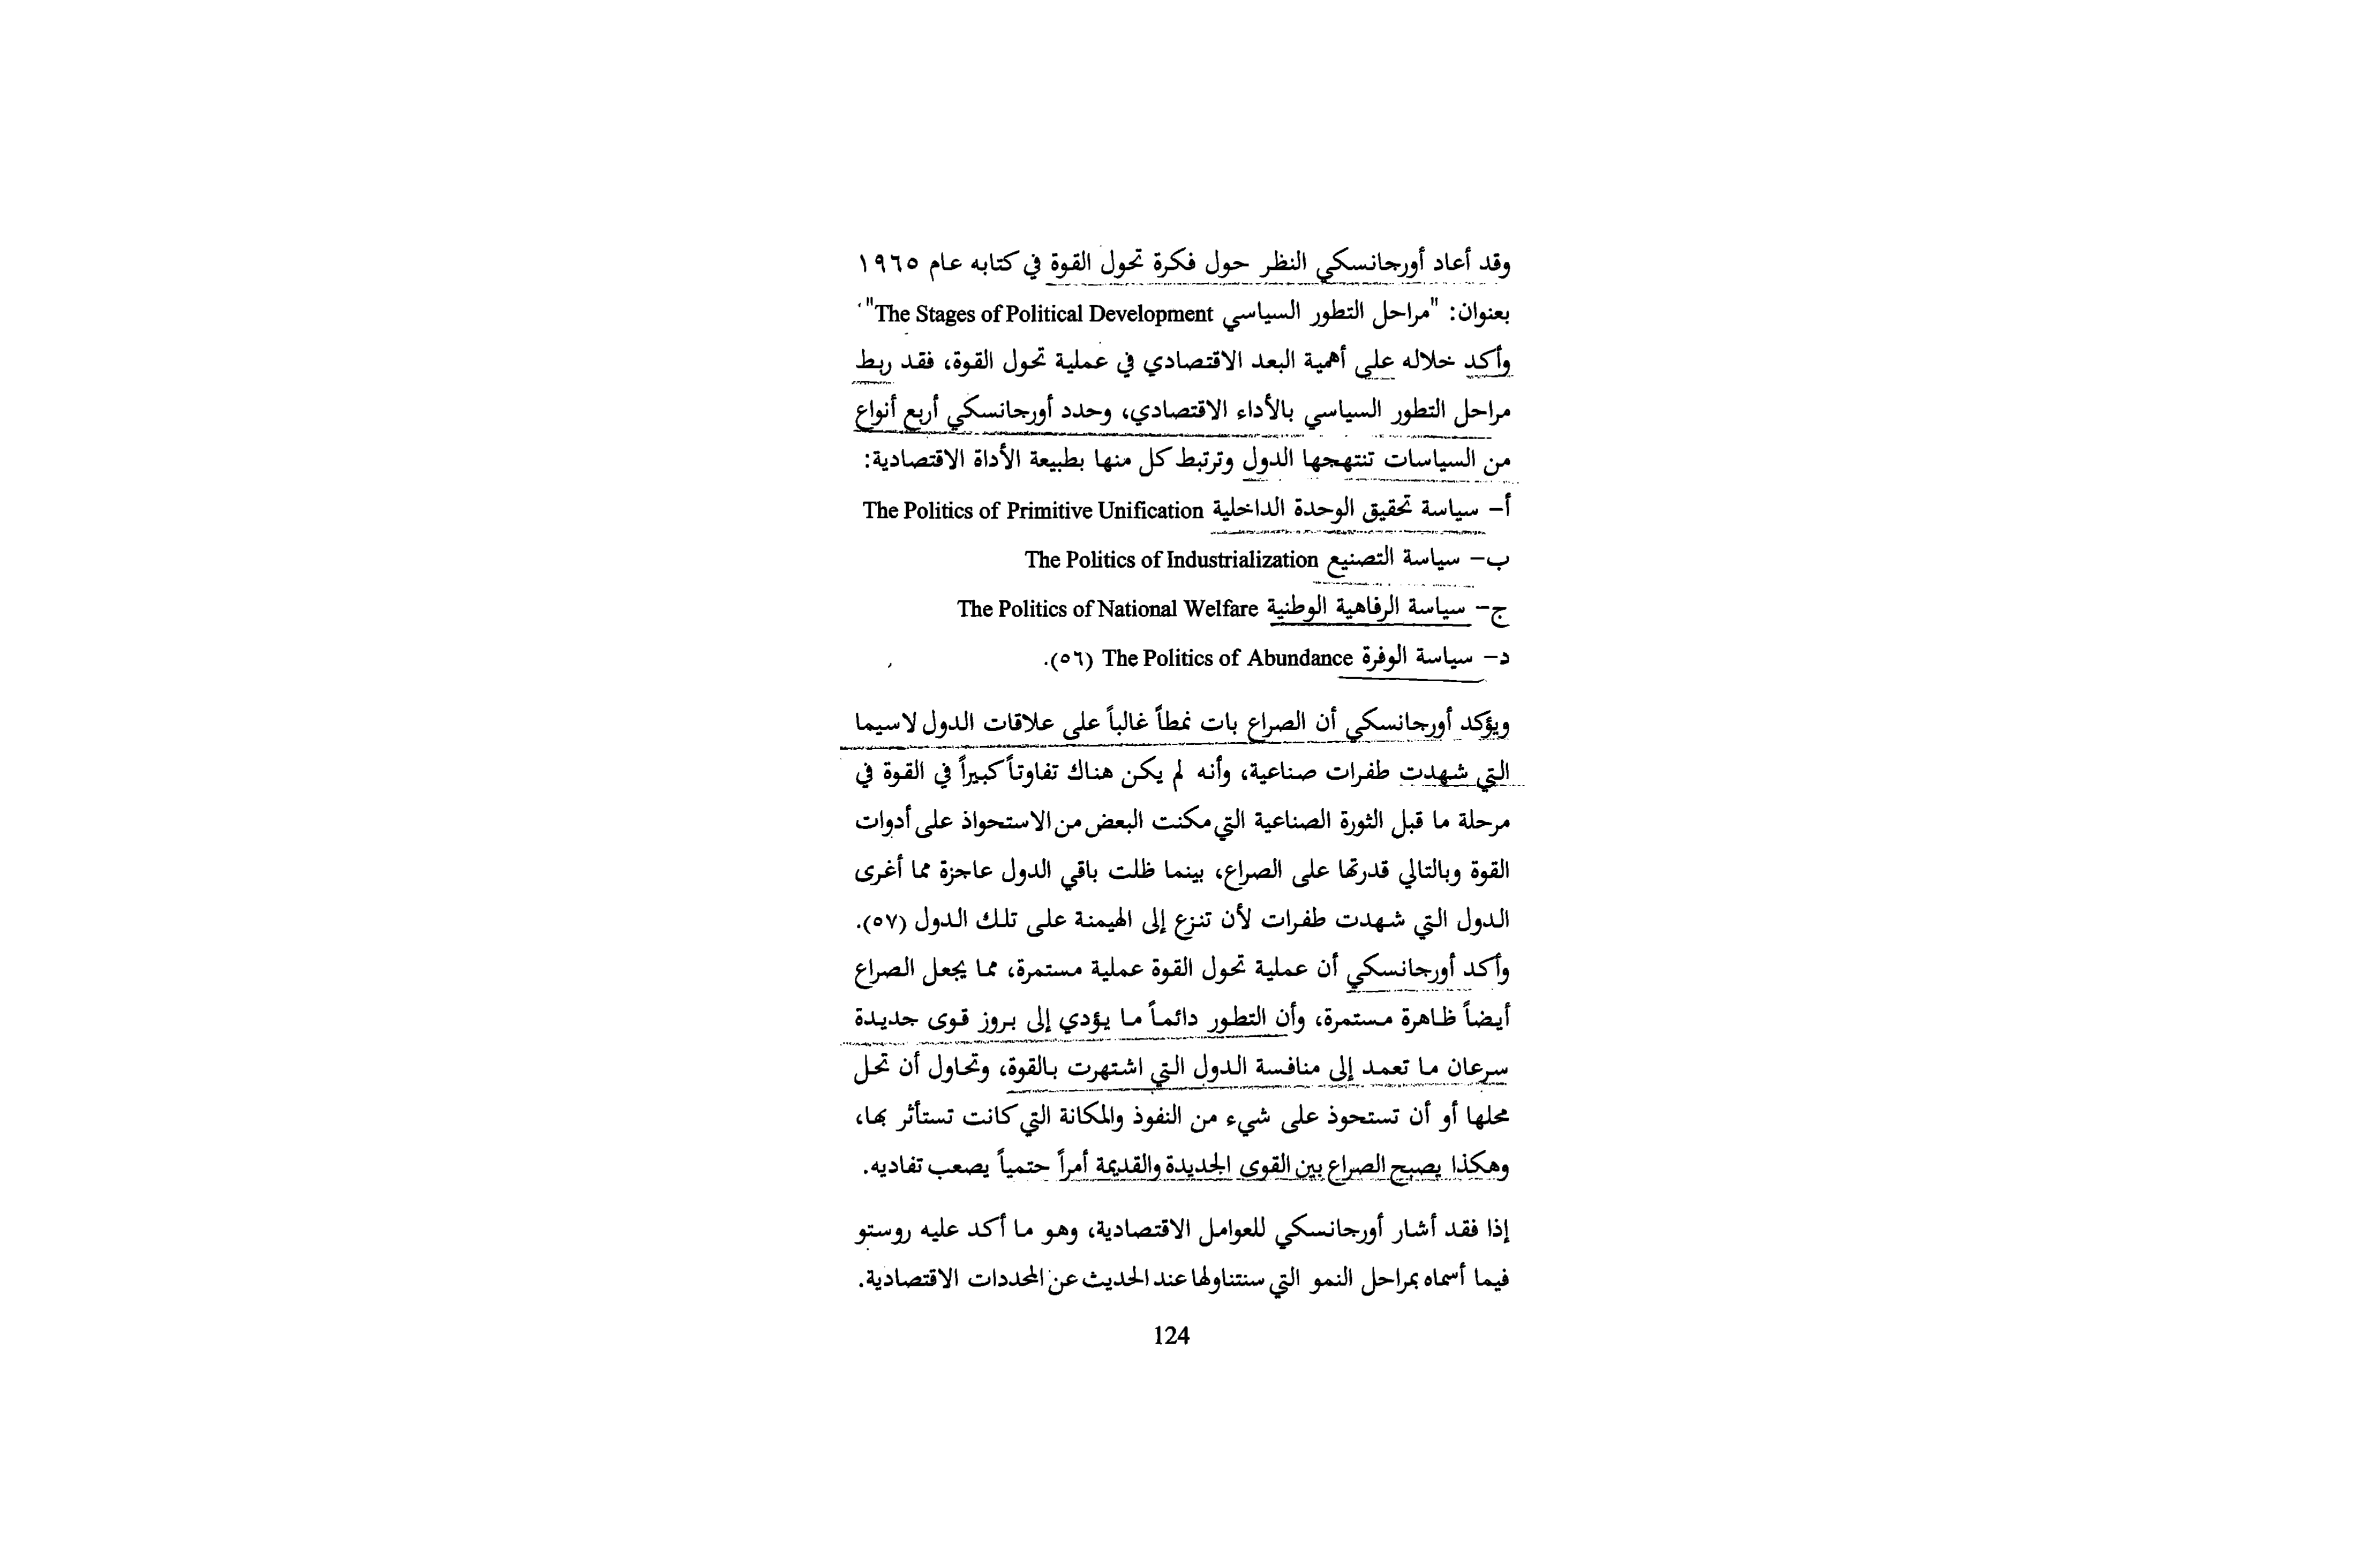 وقد أعاد أورجانسكي النظر حول فكرة تحول القوة في كتابه عام ١٩٦٥
بعنوان: "مراحل التطور السياسي The Stages of Political Development"،
وأكد خلاله على أهمية البعد الاقتصادي في عملية تحول القوة، فقد ربط
مراحل التطور السياسي بالأداء الاقتصادي، وحدد أورجانسكي أربع أنواع
من السياسات تنتهجها الدول وترتبط كل منها بطبيعة الأداة الاقتصادية:
أ– سياسة تحقيق الوحدة الداخلية The Politics of Primitive Unification
ب– سياسة التصنيع The Politics of Industrialization
ج– سياسة الرفاهية الوطنية The Politics of National Welfare
د– سياسة الوفرة The Politics of Abundance (٥٦).
ويؤكد أورجانسكي أن الصراع بات نمطاً غالباً على علاقات الدول لاسيما
التي شهدت طفرات صناعية، وأنه لم يكن هناك تفاوتاً كبيراً في القوة في
مرحلة ما قبل الثورة الصناعية التي مكنت البعض من الاستحواذ على أدوات
القوة وبالتالي قدرتها على الصراع، بينما ظلت باقي الدول عاجزة مما أغرى
الدول التي شهدت طفرات لأن تنزع إلى الهيمنة على تلك الدول (٥٧).
وأكد أورجانسكي أن عملية تحول القوة عملية مستمرة، مما يجعل الصراع
أيضاً ظاهرة مستمرة، وأن التطور دائماً ما يؤدي إلى بروز قوى جديدة
سرعان ما تعمد إلى منافسة الدول التي اشتهرت بالقوة، وتحاول أن تحل
محلها أو أن تستحوذ على شيء من النفوذ والمكانة التي كانت تستأثر بها،
وهكذا يصبح الصراع بين القوى الجديدة والقديمة أمراً حتمياً يصعب تفاديه.
إذا فقد أشار أورجانسكي للعوامل الاقتصادية، وهو ما أكد عليه روستو
فيما أسماه بمراحل النمو التي سنتناولها عند الحديث عن المحددات الاقتصادية.
124